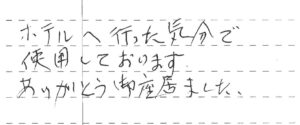 ホテルへ行った気分で
使用しております
ありがとう御座居ました、